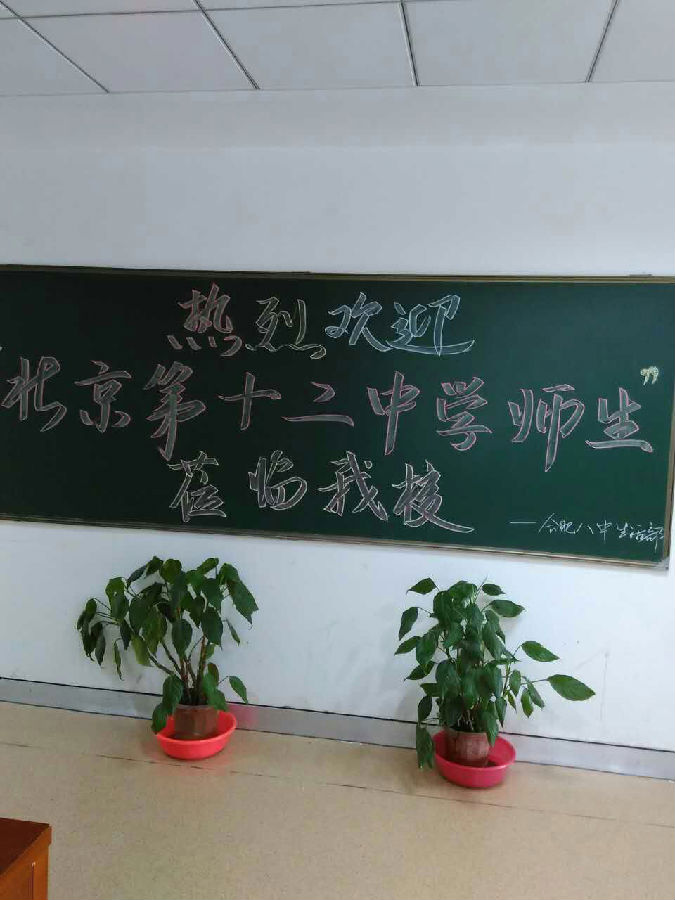 热烈欢迎
北京第十二中学师生
莅临我校
——合肥八中生活部